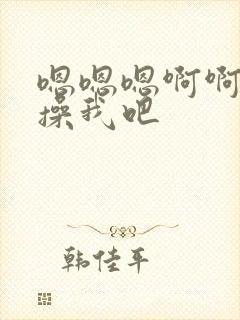 嗯嗯嗯啊啊
操我吧
韩佳平